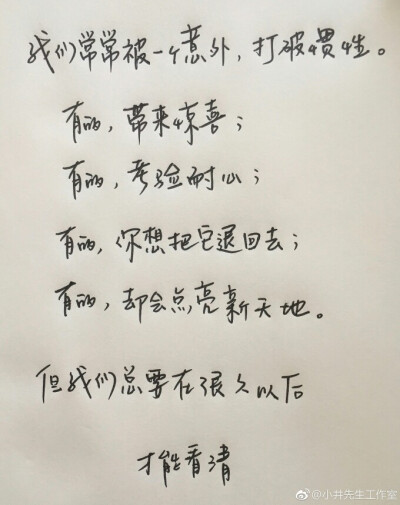 我们常常被一个意外，打破惯性。
有的，带来惊喜；
有的，考验耐心；
有的，你想把它退回去；
有的，却会点亮新天地。
但我们总要在很久以后
才能看清
@小井先生工作室